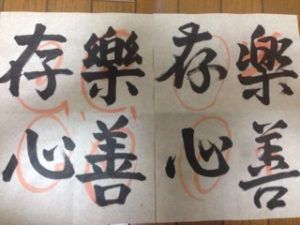 楽善
存心
樂善
存心